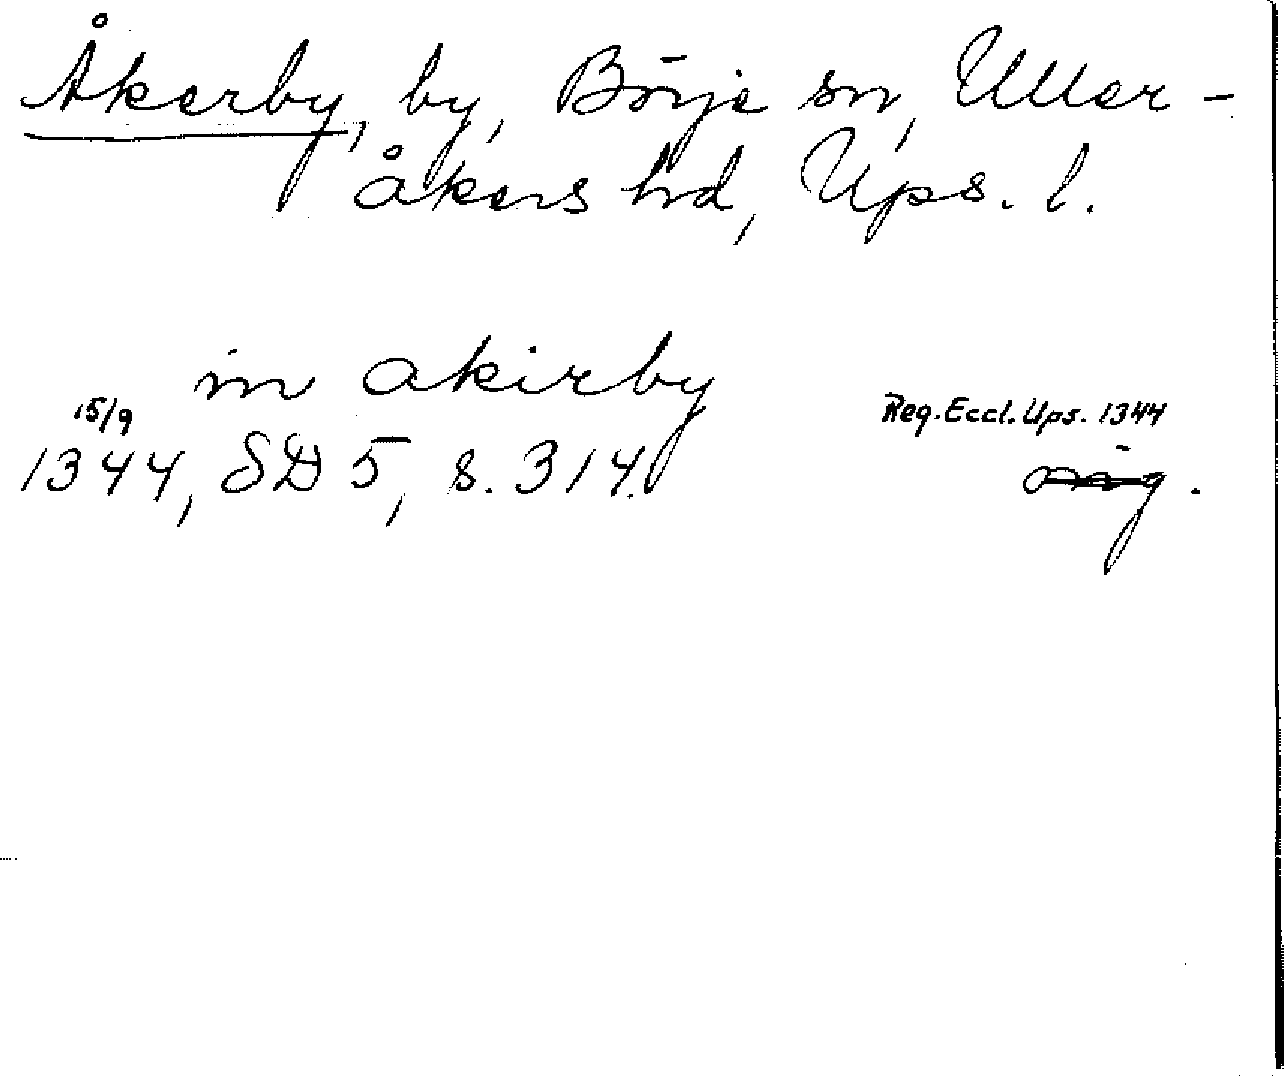 Åkerby, by, Börje sn, Uller-
åkers hd, Ups. l.
in akirby
15/9
1344, SD 5, s. 314.
Reg. Eccl. Ups. 1344
orig.